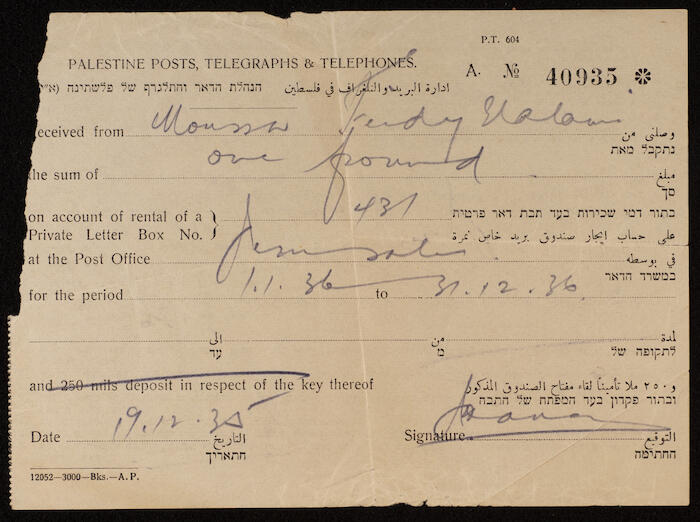 P.T. 604
PALESTINE POSTS, TELEGRAPHS & TELEPHONES.
A. № 40935 ❋
ادارة البريد والتلغراف في فلسطين הנהלת הדאר והתלגרף של פלשתינה (א״י)
Received from Moussa وصلني من
נתקבל מאת
the sum of one pound مبلغ
סך
on account of rental of a } 431 בתור דמי שכירות בעד תבת דאר פרטית
Private Letter Box No. على حساب ايجار صندوق بريد خاص نمرة
at the Post Office Jerusalem في بوسطه
במשרד הדאר
for the period 1.1.36 to 31.12.36
الى من لمدة
עד מ לתקופה של
and 250 mils deposit in respect of the key thereof و٢٥٠ ملا تأميناً لقاء مفتاح الصندوق المذكور
ובתור פקדון בעד המפתח של התבה
Date 19.12.35 التاريخ Signature التوقيع
התאריך החתימה
12052—3000—Bks.—A.P.